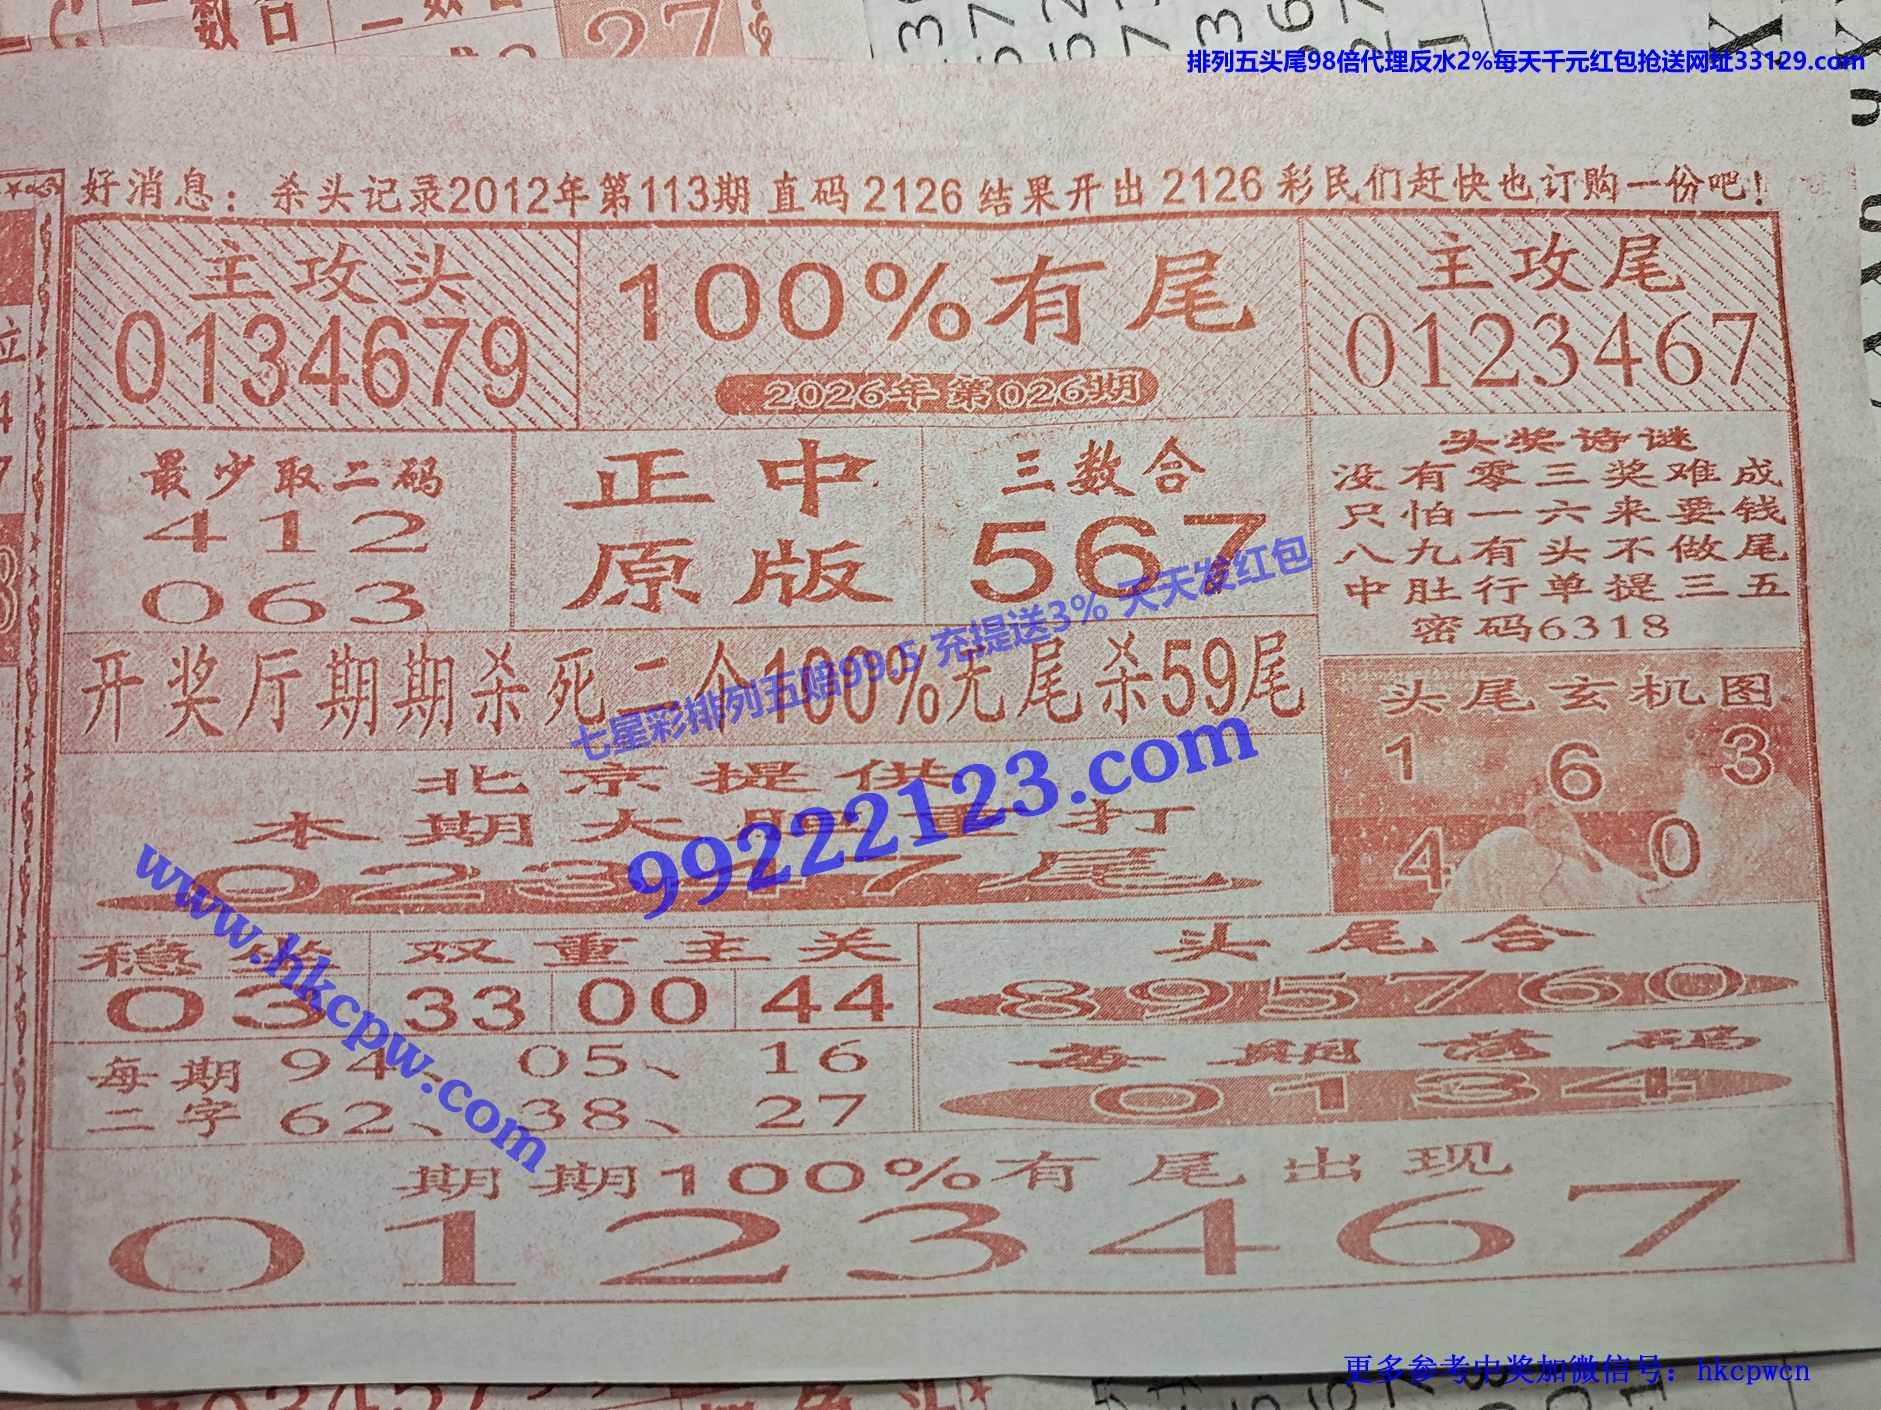 数合
二数合
27
排列五头尾98倍代理反水2%每天千元红包抢送网址33129.com
好消息：杀头记录2012年第113期 直码 2126 结果开出 2126 彩民们赶快也订购一份吧！
主攻头
0134679
100%有尾
2026年第026期
主攻尾
0123467
最少取二码
412
063
正中
原版
三数合
567
头奖诗谜
没有零三奖难成
只怕一六来要钱
八九有头不做尾
中肚行单提三五
密码6318
七星彩排列五赔99.5 充提送3% 天天发红包
开奖厅期期杀死二个100%无尾杀59尾
头尾玄机图
1 6 3
4 0
99222123.com
北京提供
本期大胆重打
02347尾
www.hkcpw.com
稳坐
03
双重主关
33 00 44
头尾合
895760
每期
二字
94、05、16
62、38、27
每期落码
0134
期期100%有尾出现
0123467
更多参考中奖加微信号：hkcpwcn